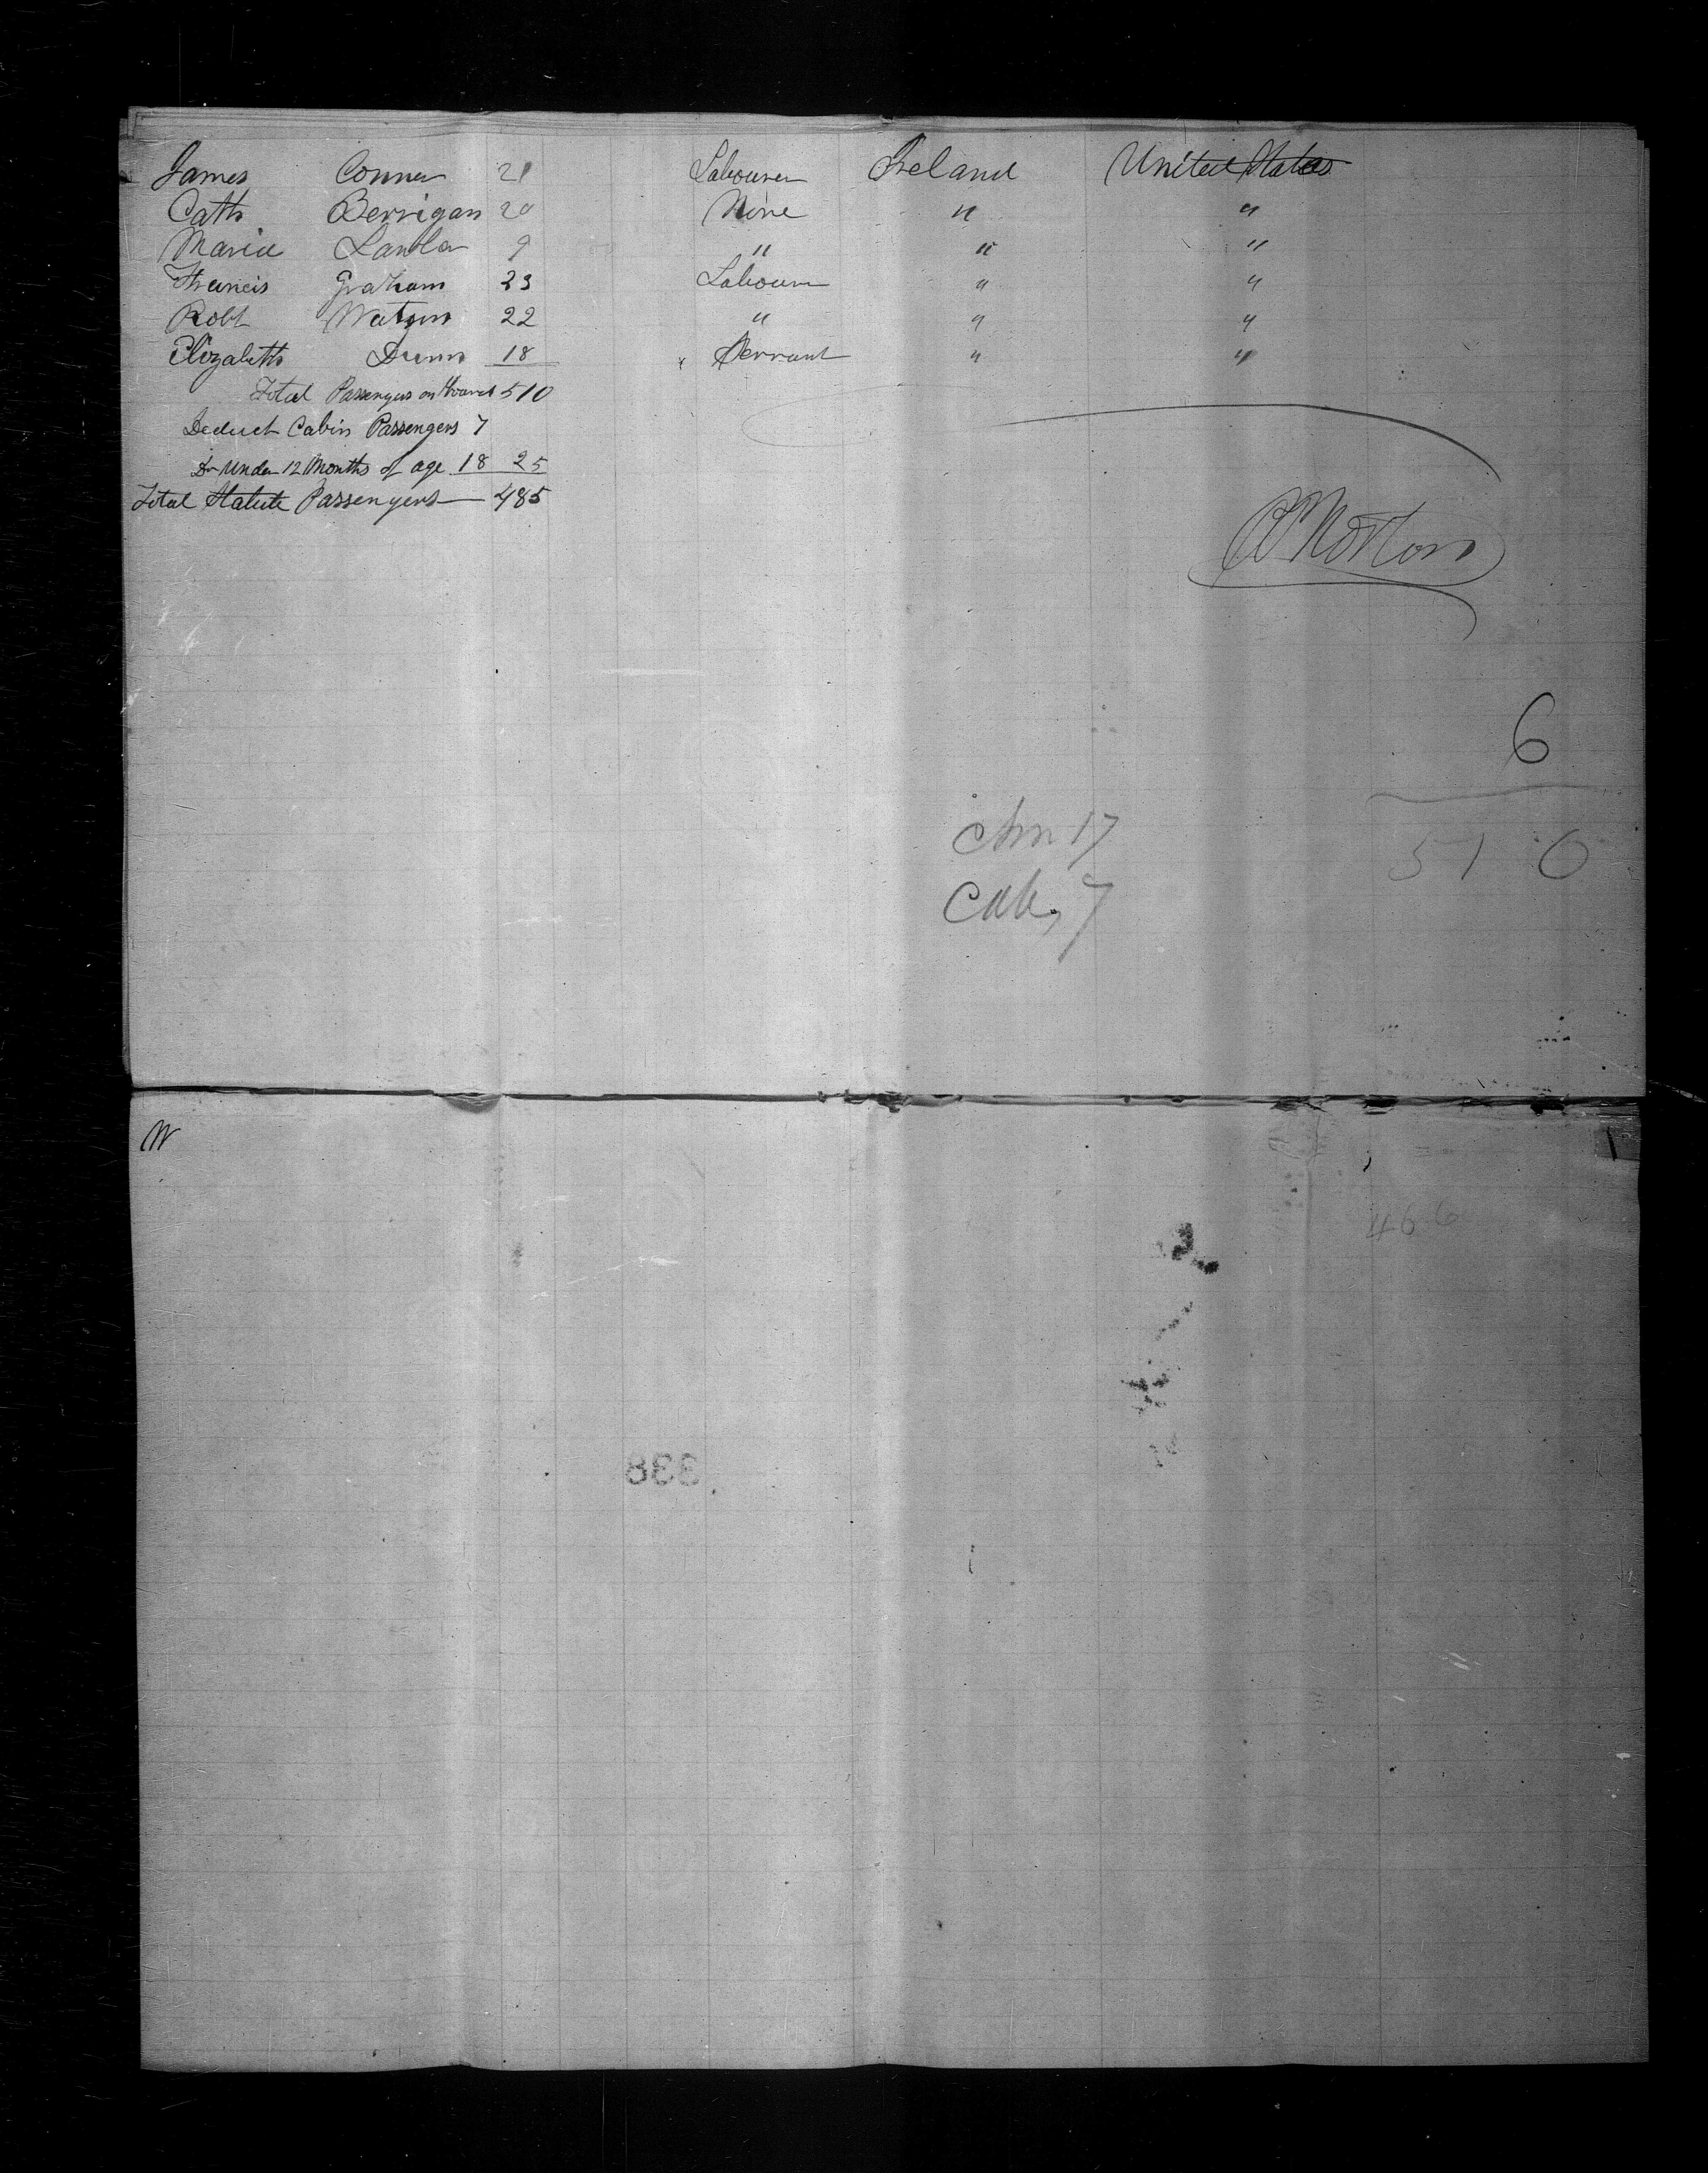 James Conner 21 Labourer Ireland United States
Cath Berrigan 20 None " "
Maria Lawlor 9 " " "
Francis Graham 23 Labourer " "
Robt Watson 22 " " "
Elizabeth Dunn 18 Servant " "
Total Passengers on Board 510
Deduct Cabin Passengers 7
Do Under 12 Months of age 18 25
Total Statute Passengers 485
Norton
6
510
17
Cab, 7
466
338